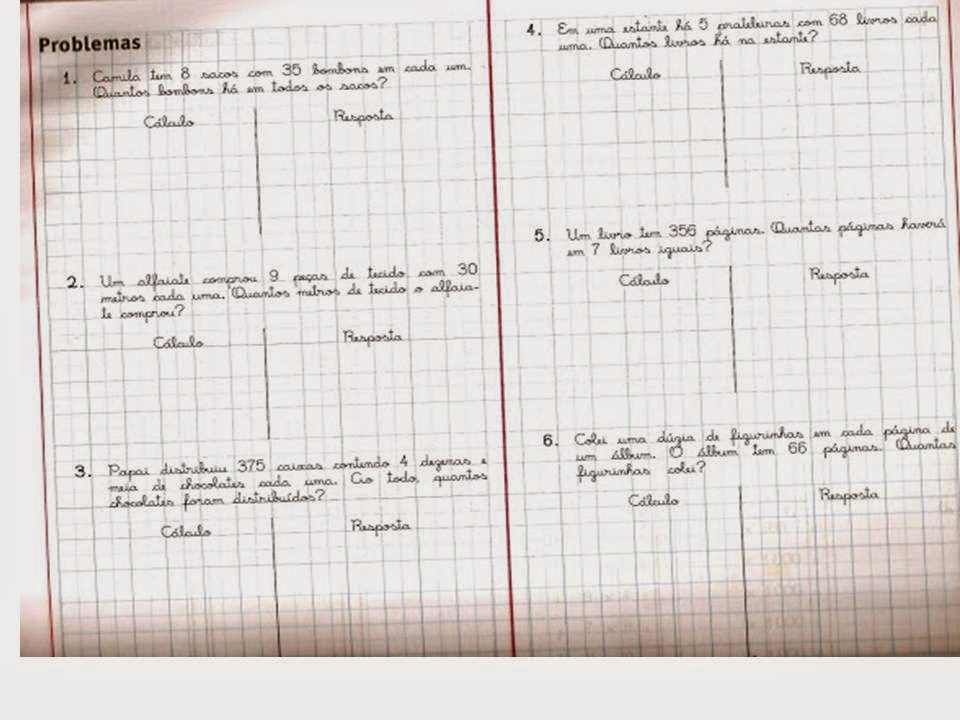 Problemas
1. Camila tem 8 sacos com 35 bombons em cada um.
Quantos bombons há em todos os sacos?
Cálculo Resposta
2. Um alfaiate comprou 9 peças de tecido com 30
metros cada uma. Quantos metros de tecido o alfaia-
te comprou?
Cálculo Resposta
3. Papai distribuiu 375 caixas contendo 4 dezenas e
meia de chocolates cada uma. Ao todo, quantos
chocolates foram distribuídos?
Cálculo Resposta
4. Em uma estante há 5 prateleiras com 68 livros cada
uma. Quantos livros há na estante?
Cálculo Resposta
5. Um livro tem 356 páginas. Quantas páginas haverá
em 7 livros iguais?
Cálculo Resposta
6. Colei uma dúzia de figurinhas em cada página de
um álbum. O álbum tem 66 páginas. Quantas
figurinhas colei?
Cálculo Resposta